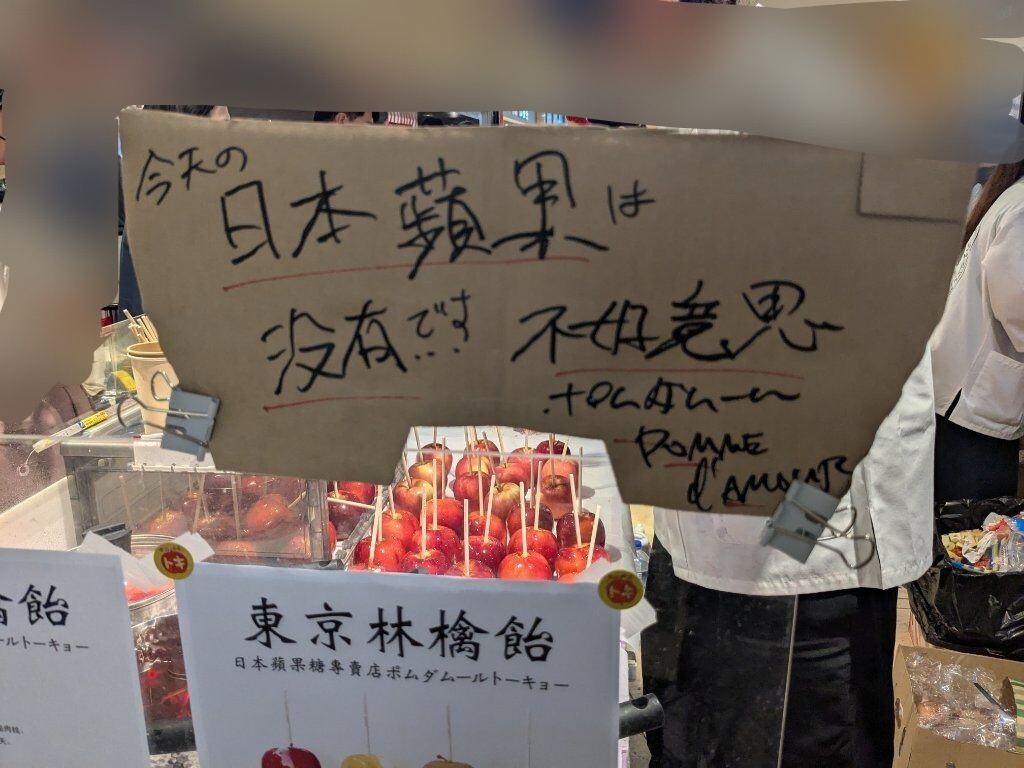 今天の
日本蘋果は
没有です
不好意思
POMME
d'AMOUR
飴
ールトーキョー
東京林檎飴
日本蘋果糖専賣店ポムダムールトーキョー